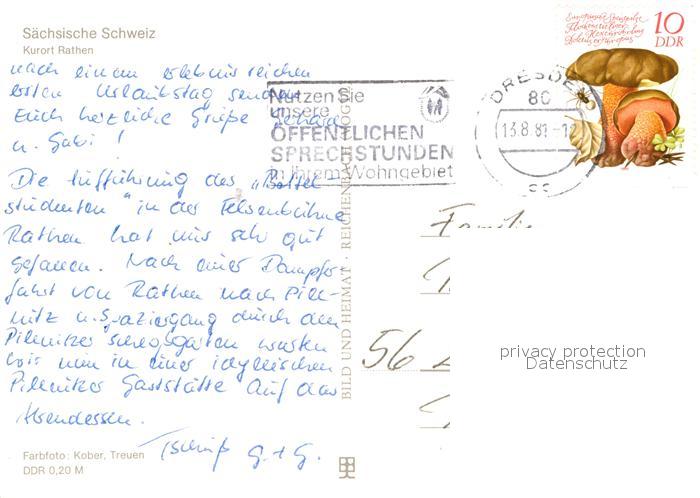 Sächsische Schweiz
Kurort Rathen
nach einem erlebnisreichen
ersten Urlaubstag senden
Euch herzliche Grüße
u. Gabi!
Die Aufführung des „Bettel
studenten“ in der Felsenbühne
Rathen hat uns sehr gut
gefallen. Nach einer Dampfer
fahrt von Rathen nach Pill-
nitz u. Spaziergang durch den
Pillnitzer Schloßgarten warten
wir nun in einer idyllischen
Pillnitzer Gaststätte auf das
Abendessen.
Tschüß G. + G.
Farbfoto: Kober, Treuen
DDR 0,20 M
BILD UND HEIMAT · REICHENBACH
Nutzen Sie
unsere
ÖFFENTLICHEN
SPRECHSTUNDEN
in Ihrem Wohngebiet
DRESDEN
80
13.8.81-12
10
DDR
Europäische Deutsche
Familie
56
privacy protection
Datenschutz